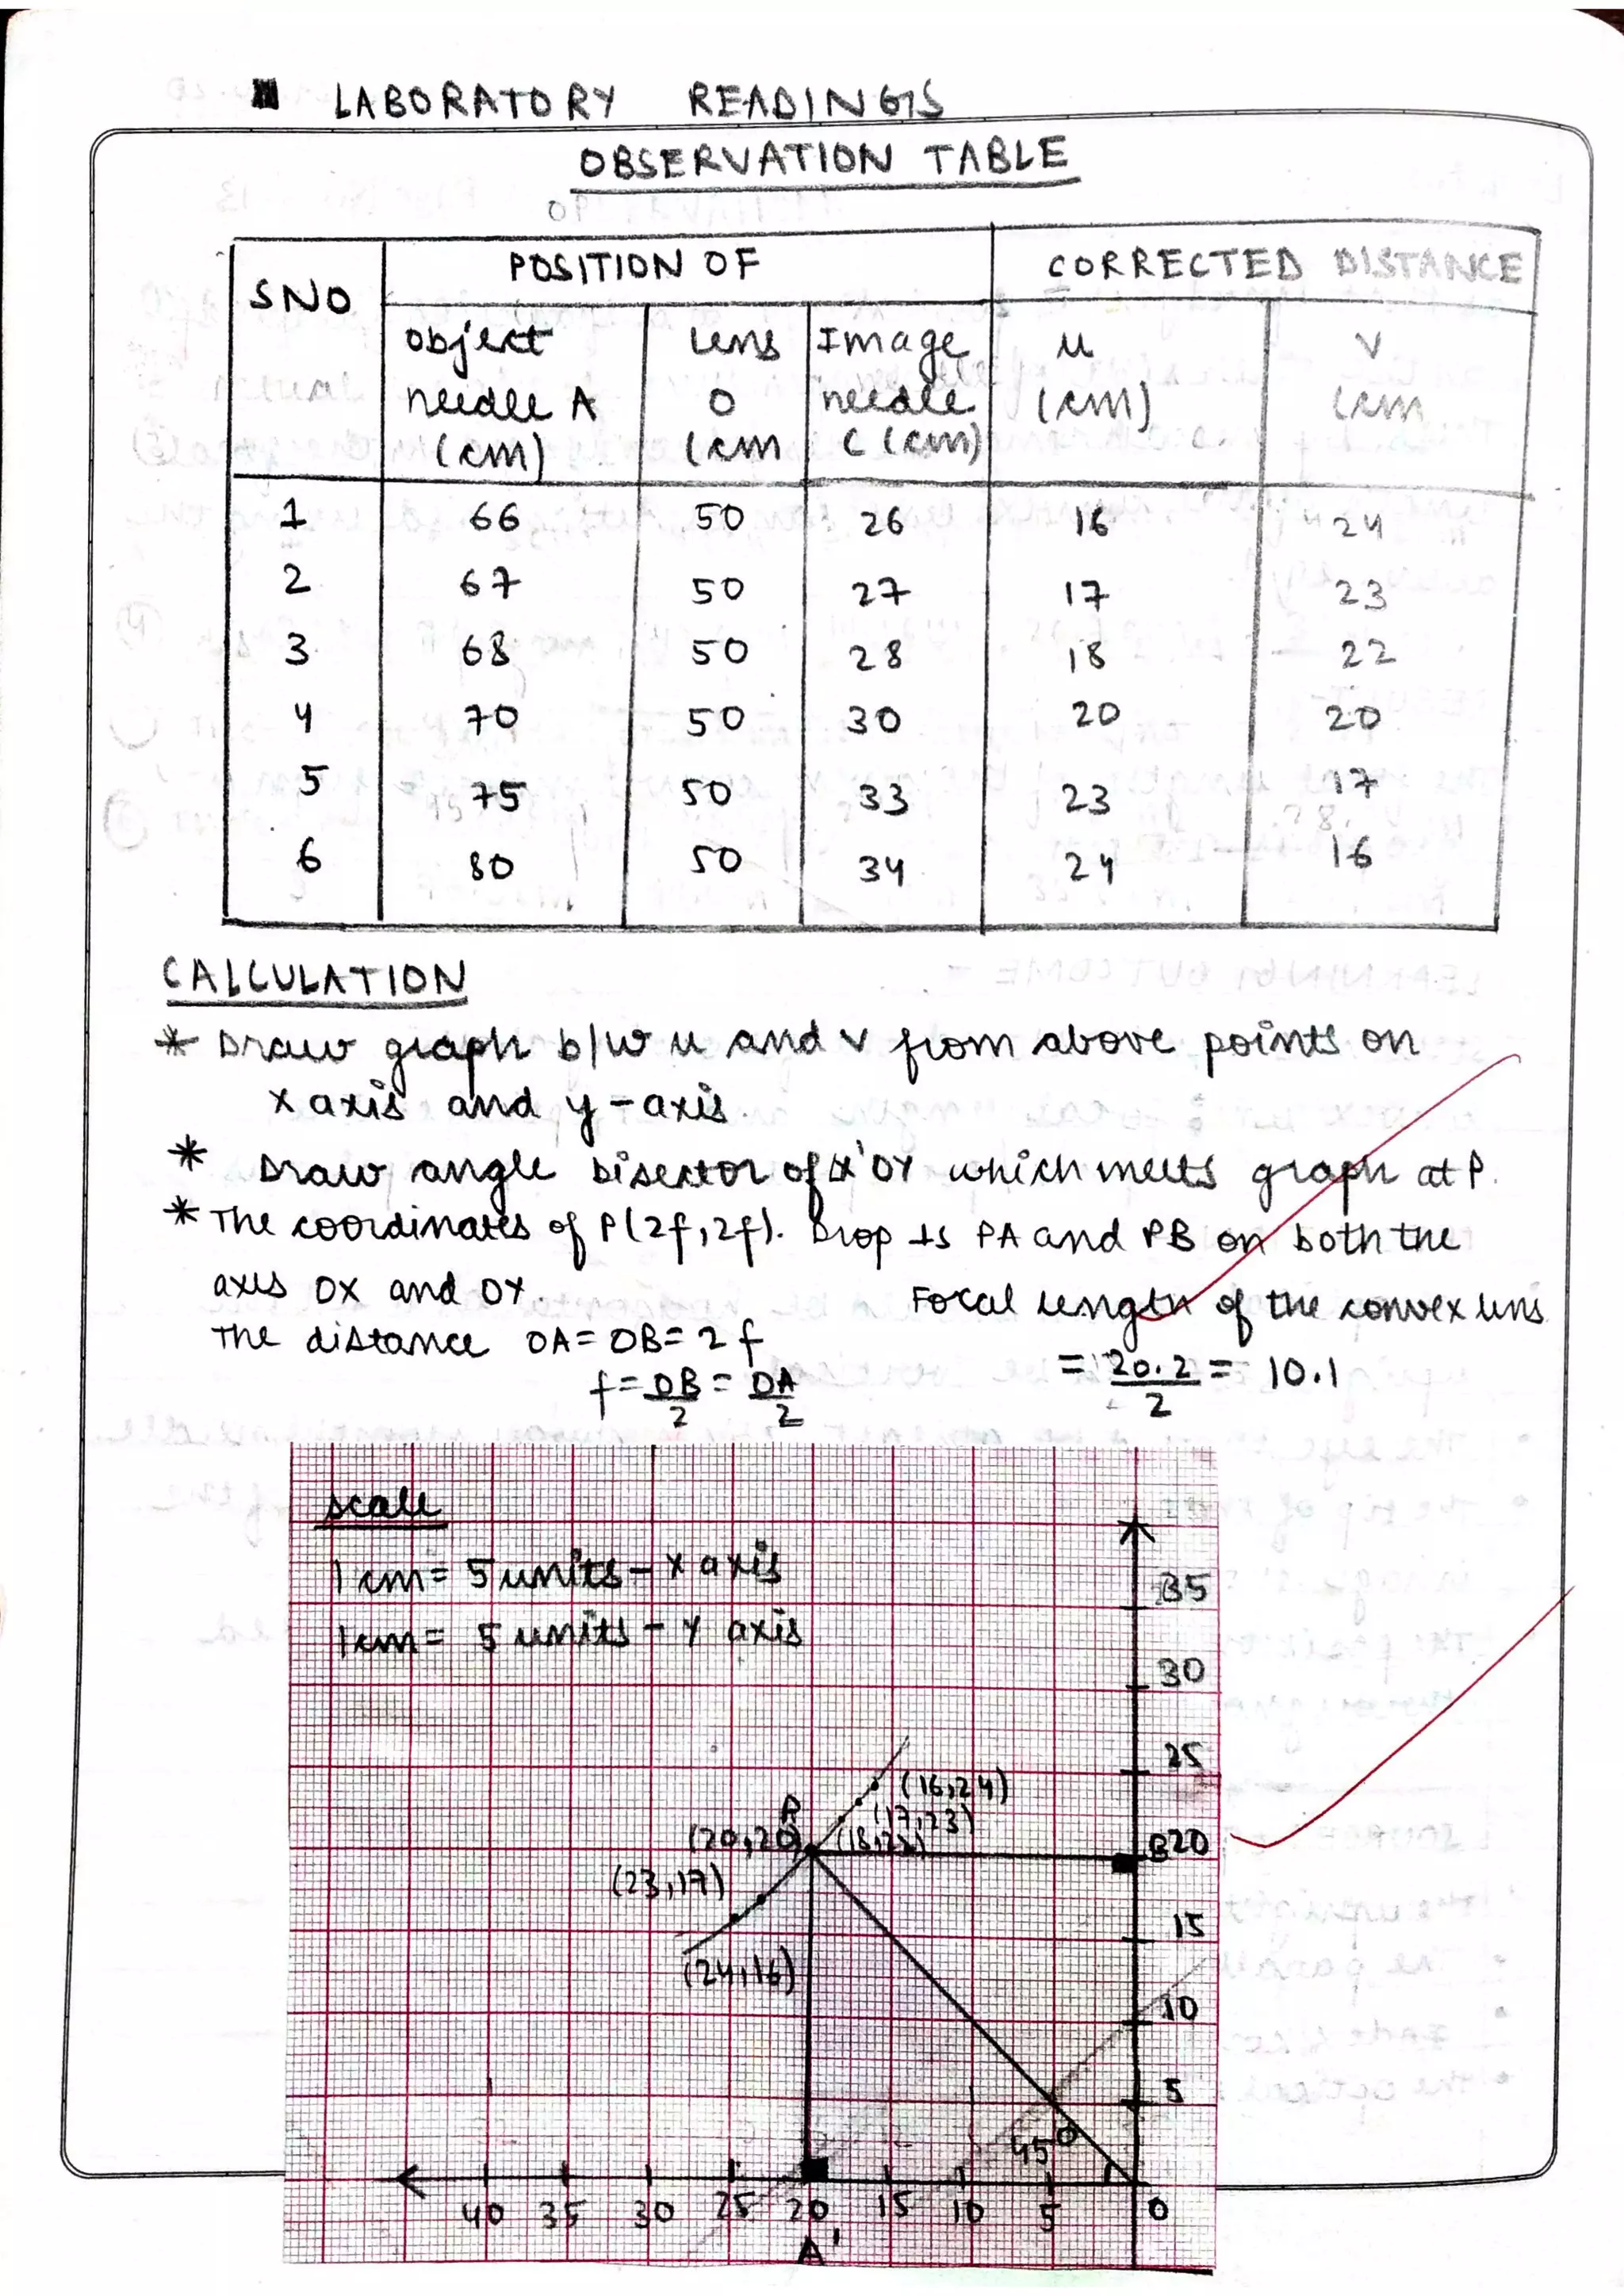 LABORATORY READINGS
OBSERVATION TABLE
SNO POSITION OF CORRECTED DISTANCE
object needle A (cm) Lens O (cm Image needle C (cm) u (cm) v (cm
1 66 50 26 16 24
2 67 50 27 17 23
3 68 50 28 18 22
4 70 50 30 20 20
5 75 50 33 23 17
6 80 50 34 24 16
CALCULATION
* Draw graph b/w u and v from above points on
x axis and y-axis.
* Draw angle bisector of X'OY which meets graph at P.
* The coordinates of P(2f,2f). Drop ⊥s PA and PB on both the
axis OX and OY.
Focal length of the convex lens
The distance OA = OB = 2f
= 20.2/2 = 10.1
f = OB/2 = OA/2
scale
1 cm = 5 units - X axis
1 cm = 5 units - Y axis
35
30
25
(16,24)
(17,23)
(20,20)
B20
(23,17)
15
(24,16)
10
5
45°
40 35 30 25 20 15 10 5 0
A'